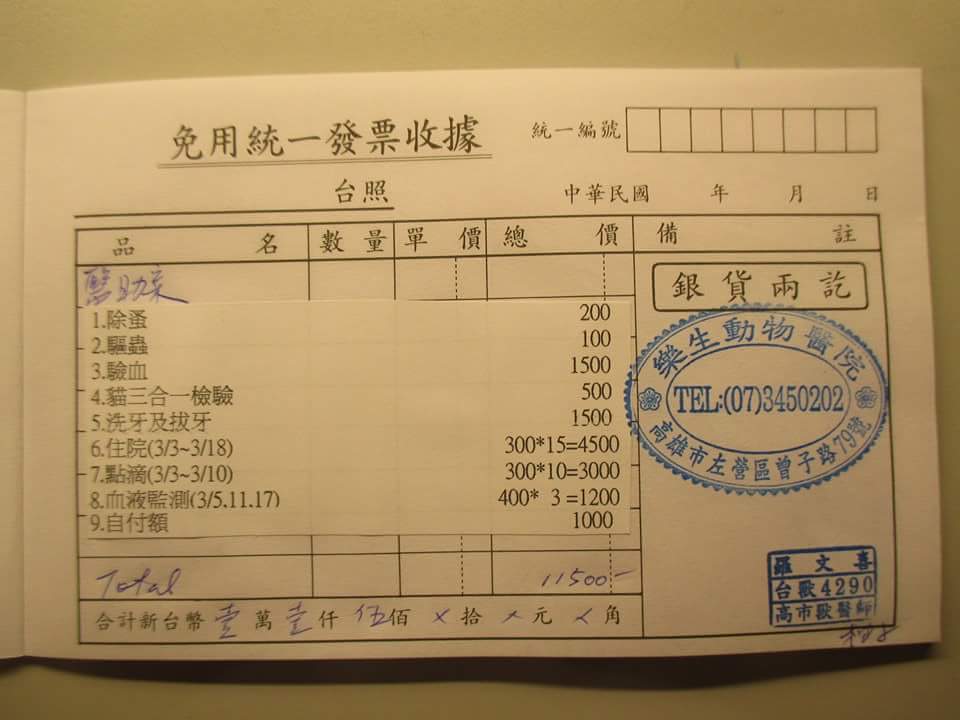 免用統一發票收據
統一編號
台照
中華民國 年 月 日
品名 數量 單價 總價 備註
銀貨兩訖
1.除蚤 200
2.驅蟲 100
3.驗血 1500
4.貓三合一檢驗 500
5.洗牙及拔牙 1500
6.住院(3/3~3/18) 300*15=4500
7.點滴(3/3~3/10) 300*10=3000
8.血液監測(3/5,11,17) 400* 3 =1200
9.自付額 1000
樂生動物醫院
TEL:(07)3450202
高雄市左營區曾子路79號
Total 11500-
合計新台幣 壹萬 壹仟 伍佰 x拾 x元 x角
羅文喜
台獸4290
高市獸醫師